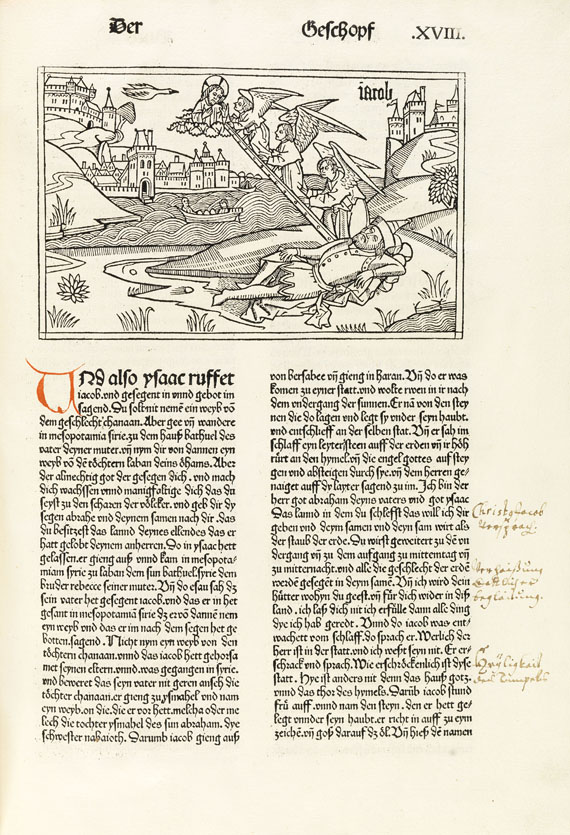 Der Geschopf .XVIII.
iacob
UNd also ysaac ruffet
iacob.vnd gesegent in vnnd gebot im
sagend. Du solt nit nemē ein weyb vō
dem geschlecht chanaan. Aber gee vn̄ wandere
in mesopotamia sirie.zu dem hauß bathuel des
vater deyner muter.vn̄ nym dir von dannen eyn
weyb vō dē töchtern laban deins öhams. Aber
der almechtig got der gesegen dich. vnd mach
dich wachssen vnnd manigfeltige dich das du
seyst zu den scharen der völcker. vnd geb dir dy
segen abrahe vnd deynem samen nach dir. das
du besitzest das lannd deynes ellendes das er
hatt gelobt deynem anherren. So in ysaac hett
gelassen.er gieng auß vnnd kam in mesopota-
miam syrie zu laban dem sun bathuel syrie dem
bruder rebecce seiner muter. Vn̄ do esau sah dz
sein vater het gesegent iacob.vnd das er in het
gesant in mesopotamiā sirie dz er vō dannē nem
eyn weyb vnd das er im nach dem segen het ge
botten.sagend. Nicht nym eyn weyb von den
töchtern chanaan.vnnd das iacob hett gehorsa
met seynen eltern.vnnd.was gegangen in syrie.
vnd beweret das seyn vater nit geren ansch die
töchter chanaan.er gieng zu ysmahel vnd nam
eyn weyb.on die.die er vor hett.melcha oder me
lech die tochter ysmahel des sun abraham. dye
schwester nabaioth. Darumb iacob gieng auß
von bersabee vn̄ gieng in haran. Vn̄ do er was
komen zu eyner statt.vnd wolte rwen in ir nach
dem vndergang der sunnen. Er nā von den stey
nen die do lagen vnd legt sy vnder seyn haubt.
vnd entschlieff an der selben stat. Vn̄ er sah im
schlaff eyn leytern steen auff der erden vn̄ ir höh
rürt an den hymel.vn̄ die engel gottes auf stey
gen vnd absteigen durch sye.vn̄ dem herren ge-
naiget auff dy layter sagend zu im. Ich bin der
herr got abraham deyns vaters vnd got ysaac
Das lannd in dem du schleffst das will ich dir
geben vnd deym samen vnd deyn sam wirt als
der staub der erde. Du wirst geweitert zu dē vn
dergang vn̄ zu dem aufgang zu mitternacht vn̄
zu mitternacht.vnd alle die geschlecht der erdē
werdē gesegēt in deym samē. Vn̄ ich wird dein
hütter wohyn du geest.vn̄ für dich wider in diß
land. ich laß dich nit ich erfülle dann alle ding
dye ich hab geredt. Vnnd do iacob was ent-
wachett vom schlaff.do sprach er. Werlich der
herr ist in der statt.vnd ich weyst seyn nit. Er er-
schrack vnd sprach. Wie erschröckenlich ist dyse
statt. Hye ist anders nit denn das hauß gotz.
vnnd das thor des hymels. Darūb iacob stund
frü auff. vnnd nam den steyn. den er hett ge-
legt vnnder seyn haubet.er richt in auff zu eym
zeichē.vn̄ goß darauf dz öl. Vn̄ hieß dē namen